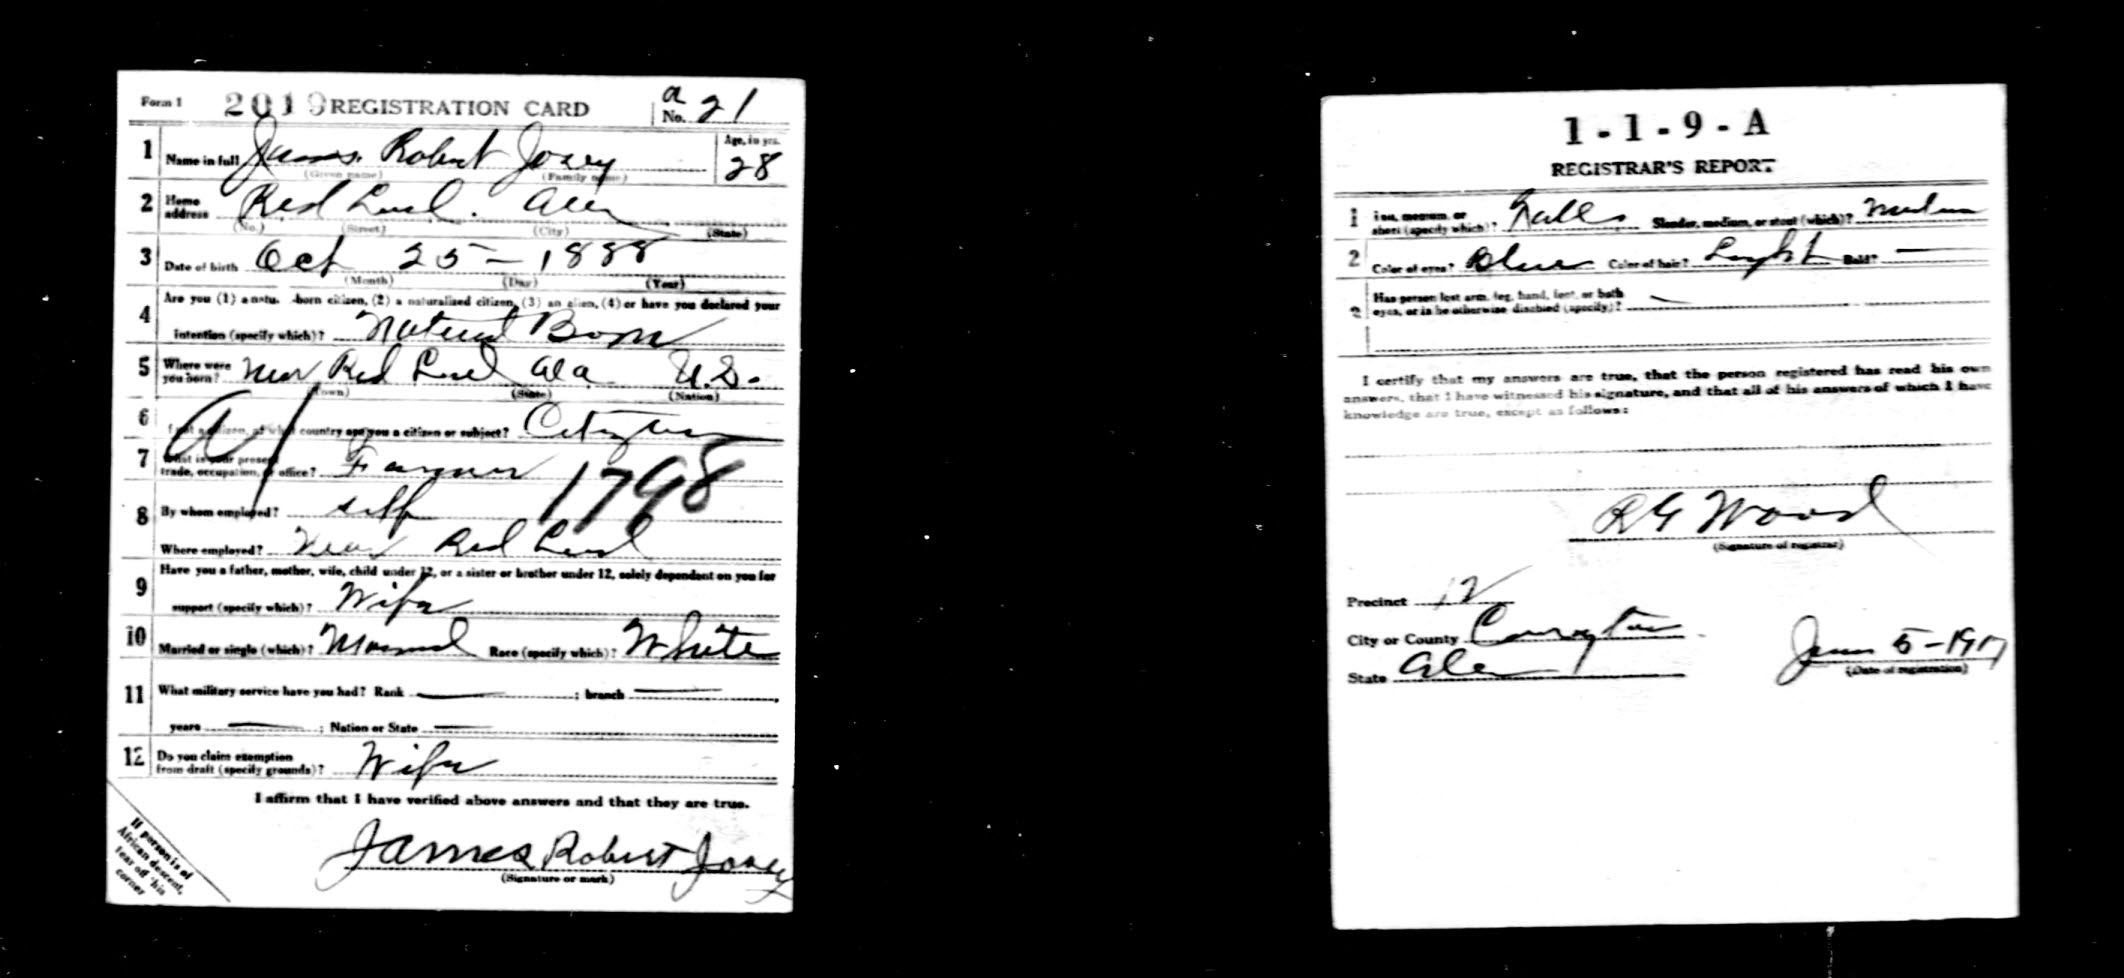 Form 1 2019 REGISTRATION CARD No. a 21
1 Name in full James Robert Josey Age, in yrs. 28
(Given name) (Family name)
2 Home address Red Level. Ala
(No.) (Street) (City) (State)
3 Date of birth Oct 25 - 1888
(Month) (Day) (Year)
4 Are you (1) a natu -born citizen, (2) a naturalized citizen, (3) an alien, (4) or have you declared your
intention (specify which)? Natural Born
5 Where were you born? Near Red Level Ala U.S.
(Town) (State) (Nation)
6 If not a citizen, of what country are you a citizen or subject? Citizen
7 What is your present trade, occupation, or office? Farmer
A/ 1798
8 By whom employed? self
Where employed? Near Red Level
9 Have you a father, mother, wife, child under 12, or a sister or brother under 12, solely dependent on you for
support (specify which)? Wife
10 Married or single (which)? Married Race (specify which)? White
11 What military service have you had? Rank — ; branch — ,
years — ; Nation or State —
12 Do you claim exemption from draft (specify grounds)? Wife
I affirm that I have verified above answers and that they are true.
James Robert Josey
(Signature or mark)
If person is of
African descent,
tear off this
corner
1-1-9-A
REGISTRAR'S REPORT
1 Tall, medium, or short (specify which)? Tall Slender, medium, or stout (which)? Medium
2 Color of eyes? Blue Color of hair? Light Bald? —
3 Has person lost arm, leg, hand, foot, or both
eyes, or is he otherwise disabled (specify)? —
I certify that my answers are true, that the person registered has read his own
answers, that I have witnessed his signature, and that all of his answers of which I have
knowledge are true, except as follows:
R G Wood
(Signature of registrar)
Precinct 12
City or County Covington
State Ala
June 5-1917
(Date of registration)